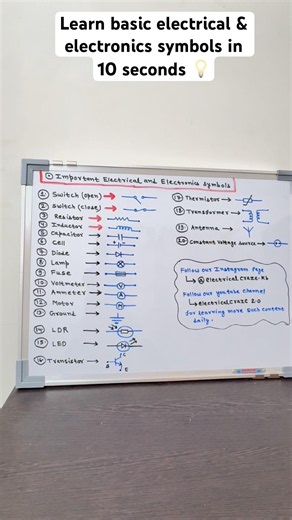 Learn basic electrical &
electronics symbols in
10 seconds 💡
Important Electrical and Electronics Symbols
1 Switch (open) →
2 Switch (close) →
3 Resistor →
4 Inductor →
5 Capacitor →
6 Cell →
7 Diode →
8 Lamp →
9 Fuse →
10 Voltmeter → V
11 Ammeter → A
12 Motor → M
13 Ground →
14 LDR →
15 LED →
16 Transistor → B C E
17 Thermistor →
18 Transformer →
19 Antenna →
20 Constant Voltage Source →
Follow our Instagram Page
Follow our youtube channel
→ electrical craze 2.0
for learning more such content
daily.